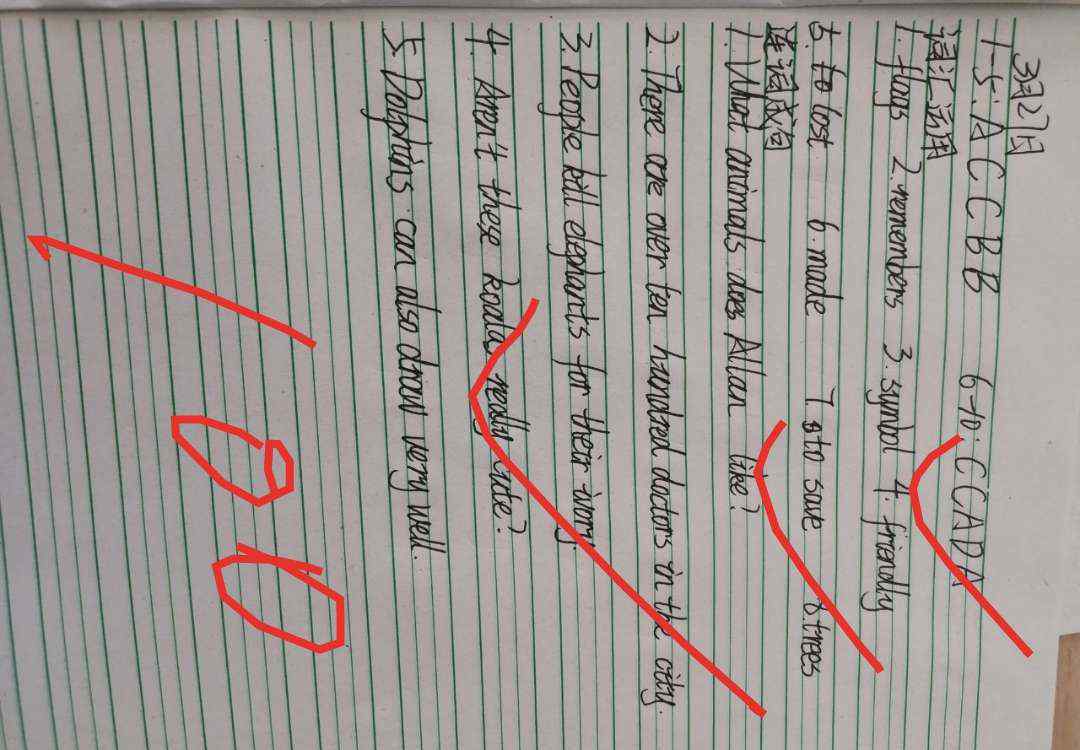 3月27日
1-5: A C C B B 6-10. C C A D A
词汇运用
1. flags 2. remembers 3. symbol 4. friendly
5. to lost 6. made 7. to save 8. trees
连词成句
1. What animals does Allan like?
2. There are over ten hundred doctors in the city.
3. People kill elephants for their ivory.
4. Aren't these koalas really cute?
5. Dolphins can also draw very well.
100